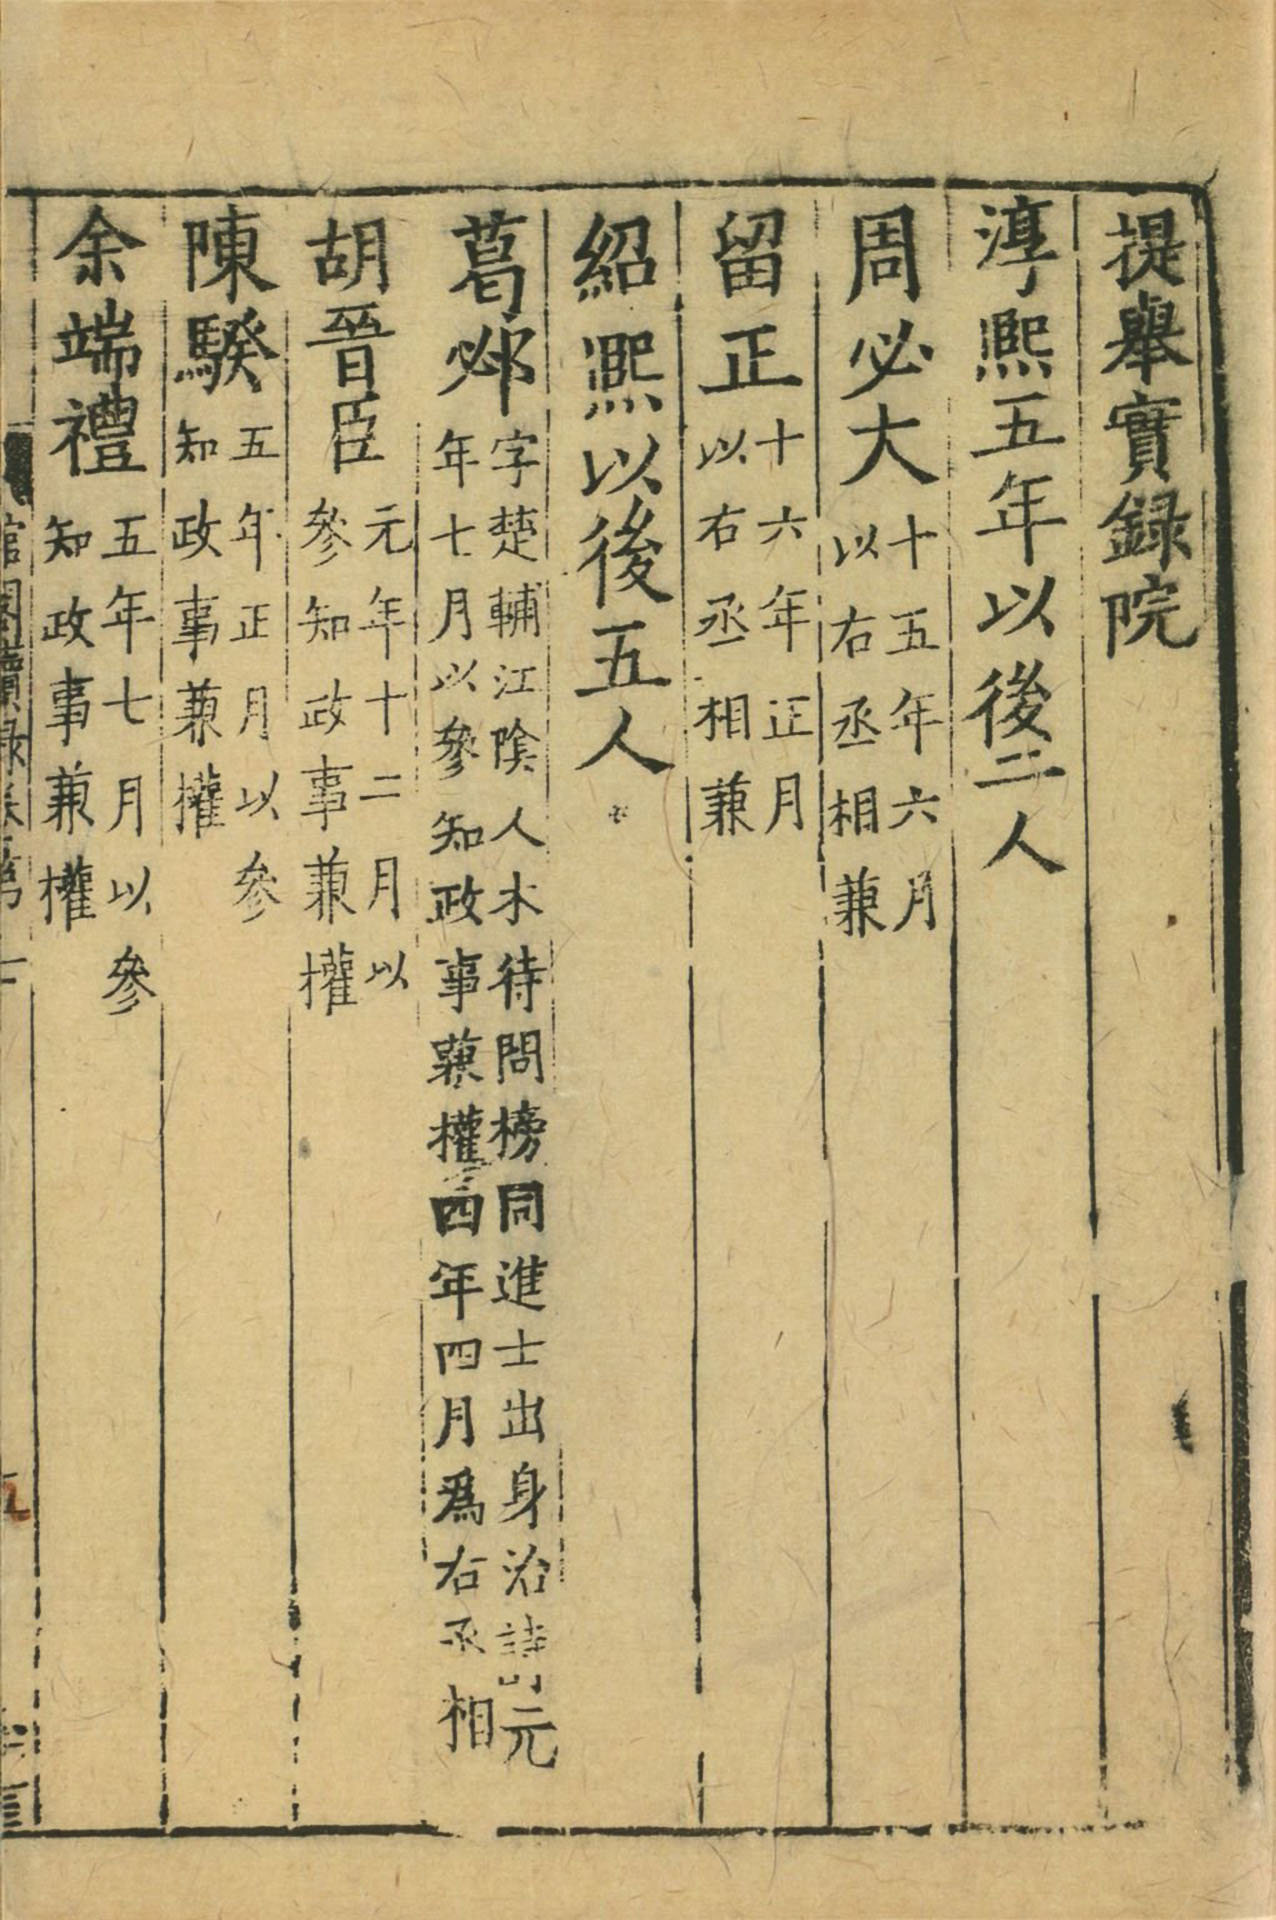 提舉實録院
淳熙五年以後二人
周必大十五年六月
以右丞相兼
留正十六年正月
以右丞相兼
紹熙以後五人
葛邲字楚輔江隂人木待問榜同進士出身治詩元
年七月以參知政事兼權四年四月爲右丞相
胡晉臣元年十二月以
參知政事兼權
陳騤五年正月以參
知政事兼權
余端禮五年七月以參
知政事兼權
館閣續録卷第